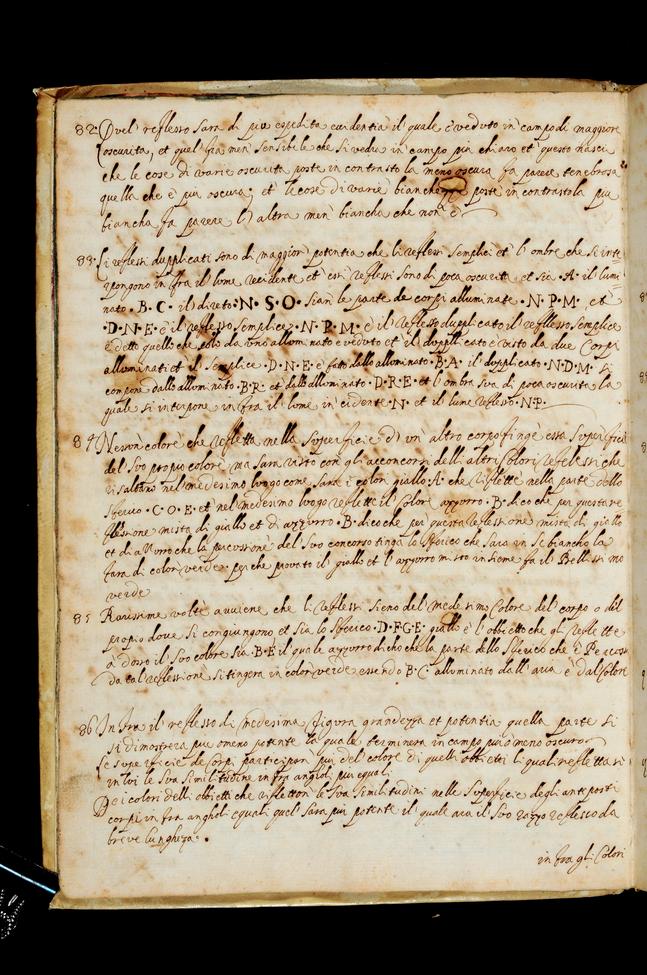 82 Quel reflesso sara di piu espedita euidentia il quale è veduto in campo di maggiore
oscurità, et quel fia men sensibile che si vedra in campo piu chiaro et questo nasce
che le cose di varie oscurità poste in contrasto la meno oscura fa parere tenebrosa
quella che è piu oscura; et le cose di varie bianchezze poste in contrasto la piu
biancha fa parere l'altra men biancha che non è
83 Li reflessi dupplicati sono di maggior potentia che li reflessi semplici et l'ombre che si inte
rpongono in fra il lume incidente et essi reflessi sono di poca oscurità et sia ·A· il lumi
nato ·B·C· il direto ·N·S·O· sian le parte de corpi alluminate ·N·P·M· et
·D·N·E· è il reflesso semplice ·N·P·M· è il reflesso dupplicato il reflesso semplice
è detto quelli che solo da uno alluminato è veduto et il dupplicato è visto da due corpi
alluminati et il semplice ·D·N·E· è fatto dallo alluminato ·B·A· il dupplicato ·N·D·M· si
compone dallo alluminato ·B·R· et dallo alluminato ·D·R·E· et l'ombra sua di poca oscurità la
quale si interpone in fra il lume incidente ·N· et il lume reflesso ·N·P·
84 Nessun colore che refletta nella superficie d'un altro corpo tinge essa superficie
del suo propio colore, ma sara misto con gli acconcorsi delli altri colori reflessi che
risaltano nel medesimo luogo come sara è color giallo ·A· che riflette nella parte dello
sferico ·C·O·E· et nel medesimo luogo reflette il colore azzurro ·B· dico che per questa re
flessione mista di giallo et di azzurro ·B· dico che per questa reflessione mista di giallo
et di azzurro che la percussione del suo concorso tinga lo sferico che sara in se biancho la
fara di color verde, perche provato il giallo et l'azzurro misto insieme fa il bellissimo
verde
85 Rarissime volte auuiene che li reflessi sieno del medesimo colore del corpo o del
propio dove si congiungono et sia lo sferico ·D·F·G·E· giallo è l'obbietto che gli reflette
à dosso il suo colore sia ·B·E· il quale azzurro dicho che la parte dello sferico che è Percossa
da tal reflessione si tingera in color verde essendo ·B·C· alluminato dall'aria è dal sole
86 In fra il reflesso di medesima figura grandezza et potentia quella parte si
si dimostrera piu o meno potente la quale terminera in campo piu o meno oscuro
Le superficie de corpi participan piu del colore di quelli obbietti li quali reflettan
in lui le sua similitudine in fra angioli piu equali
De i colori delli obbietti che riflettono le sua similitudini nelle superficie degli anteposti
corpi in fra angholi equali quel sara piu potente il quale ara il suo razzo reflesso da
breve lunghezza ·
in fra gli Colori